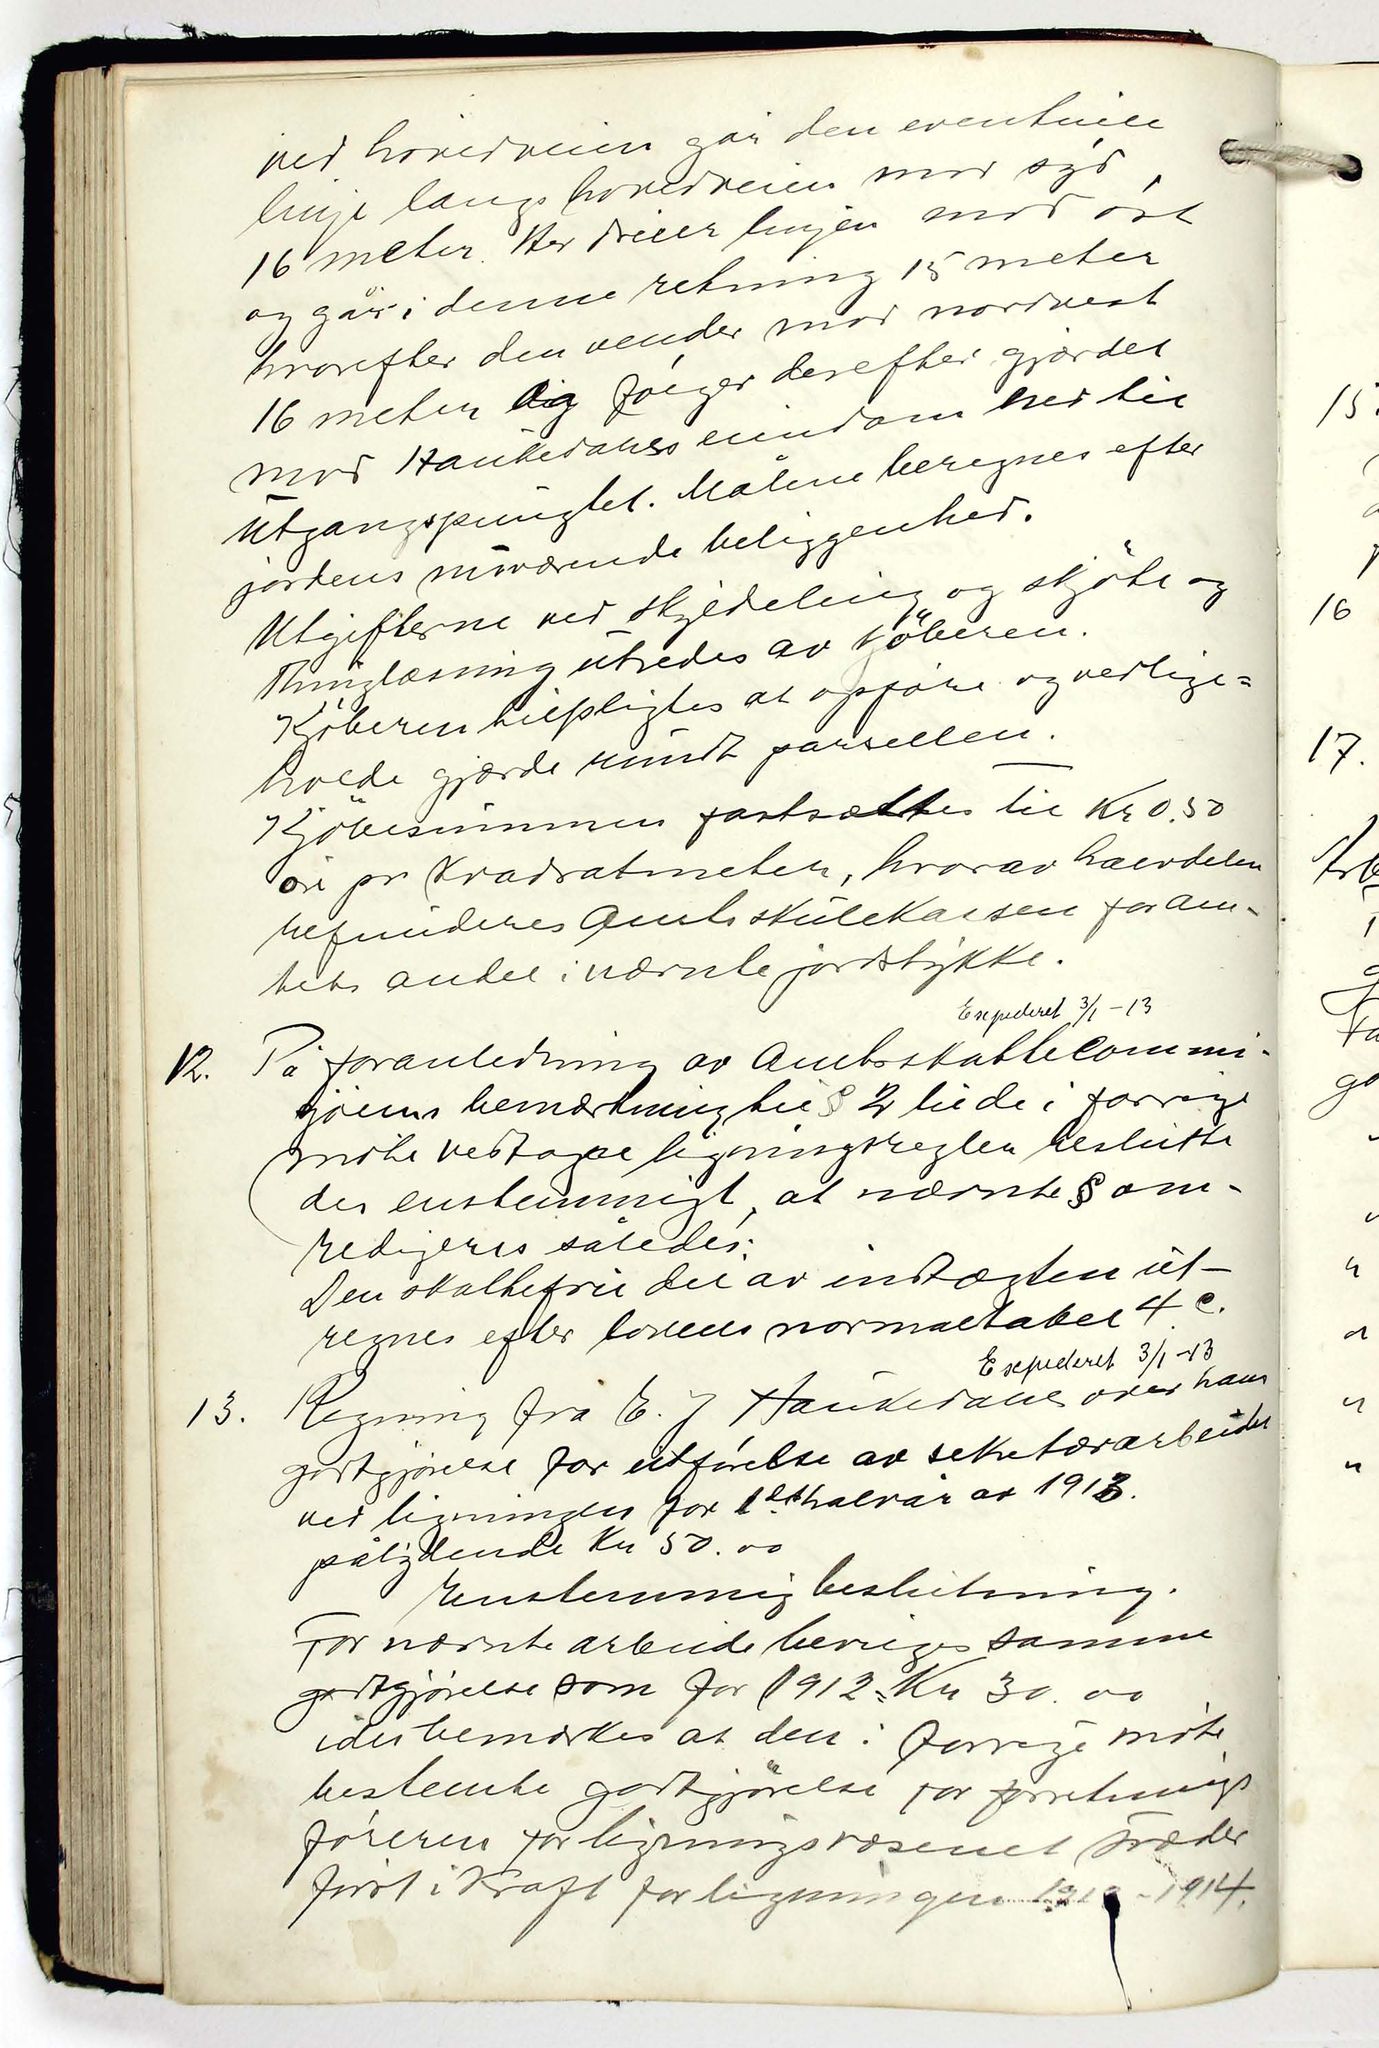 ved hovedveien går den eventuelle
linje langs hovedveien mod syd
16 meter. Her dreier linjen mod øst
og går i denne retning 15 meter
hvorefter den vender mod nordvest
16 meter og følger derefter gjærdet
mod Haukedals eiendom ned til
Utgangspungtet. Målene beregnes efter
jordens nuværende beliggenhed.
Utgifterne ved skyldeling og skjöte og
Thinglæsning utredes av kjöberen.
Kjöberen tilpligtes at opføre og vedlige=
holde gjærde rundt parsellen.
Kjöbesummen fastsættes til Kr 0.50
øre pr Kvadratmeter, hvorav halvdelen
refunderes Amtsskulekassen for am-
tets andel i nævnte jordstykke.
Expederet 3/1 - 13
12. På foranledning av Amtsskattecommi-
sjonens bemærkning til § 2 til de i forrige
møte vedtagne ligningsregler besluttedes
der enstemmigt, at nævnte § om-
redigeres således:
Den skattefrie del av indtægten ut-
regnes efter lovens normaltabel 4 c.
Expederet 3/1 - 13
13. Regning fra E. J Haukedal over hans
godtgjørelse for utførelse av sekretærarbeider
ved ligningen for 1ste halvår av 1913.
pålydende Kr 50.00
Enstemmig beslutning.
For nævnte arbeide beviges samme
godtgjørelse som for 1912 = Kr 30.00
idet bemærkes at den i forrige møte
bestemte godtgjörelse for forretnings
føreren for ligningsvæsenet træder
først i Kraft for ligningen 1913 - 1914.
15.
16
17.